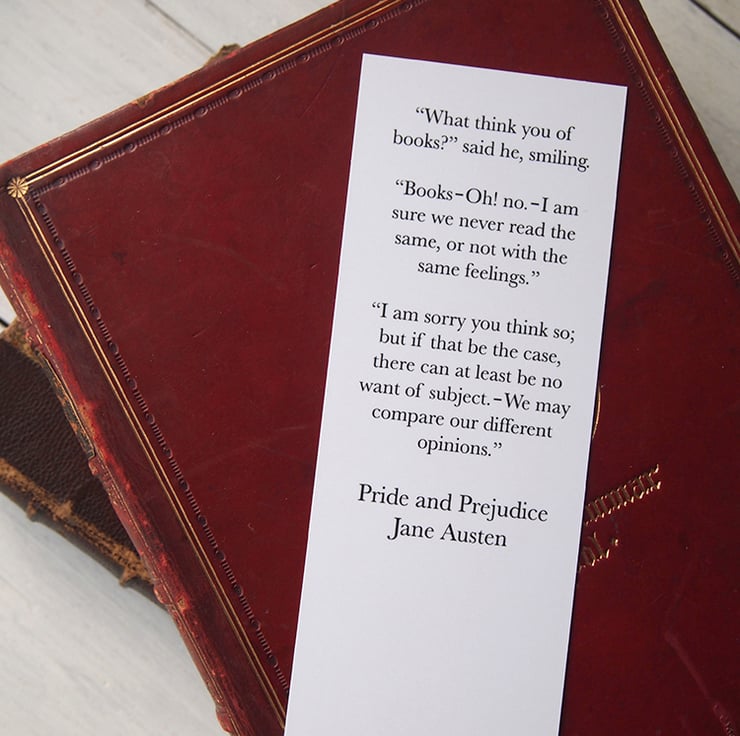 “What think you of
books?” said he, smiling.
“Books–Oh! no.–I am
sure we never read the
same, or not with the
same feelings.”
“I am sorry you think so;
but if that be the case,
there can at least be no
want of subject.–We may
compare our different
opinions.”
Pride and Prejudice
Jane Austen